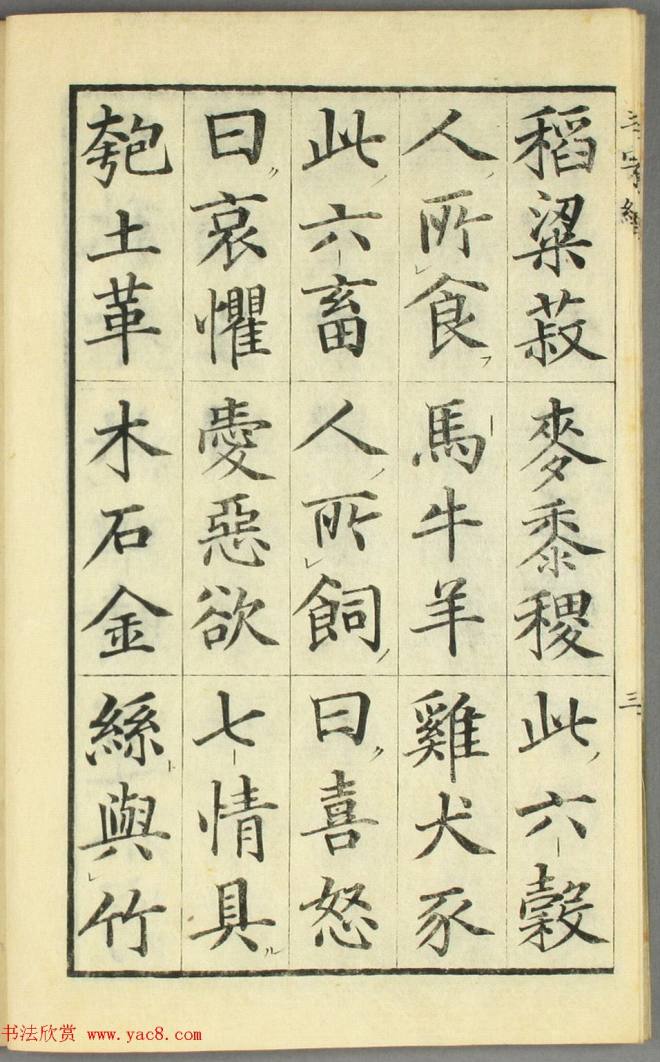 三字經
三
稻粱菽 麥黍稷 此六穀
人所食 馬牛羊 雞犬豕
此六畜 人所飼 曰喜怒
曰哀懼 愛惡欲 七情具
匏土革 木石金 絲與竹
书法欣赏 www.yac8.com